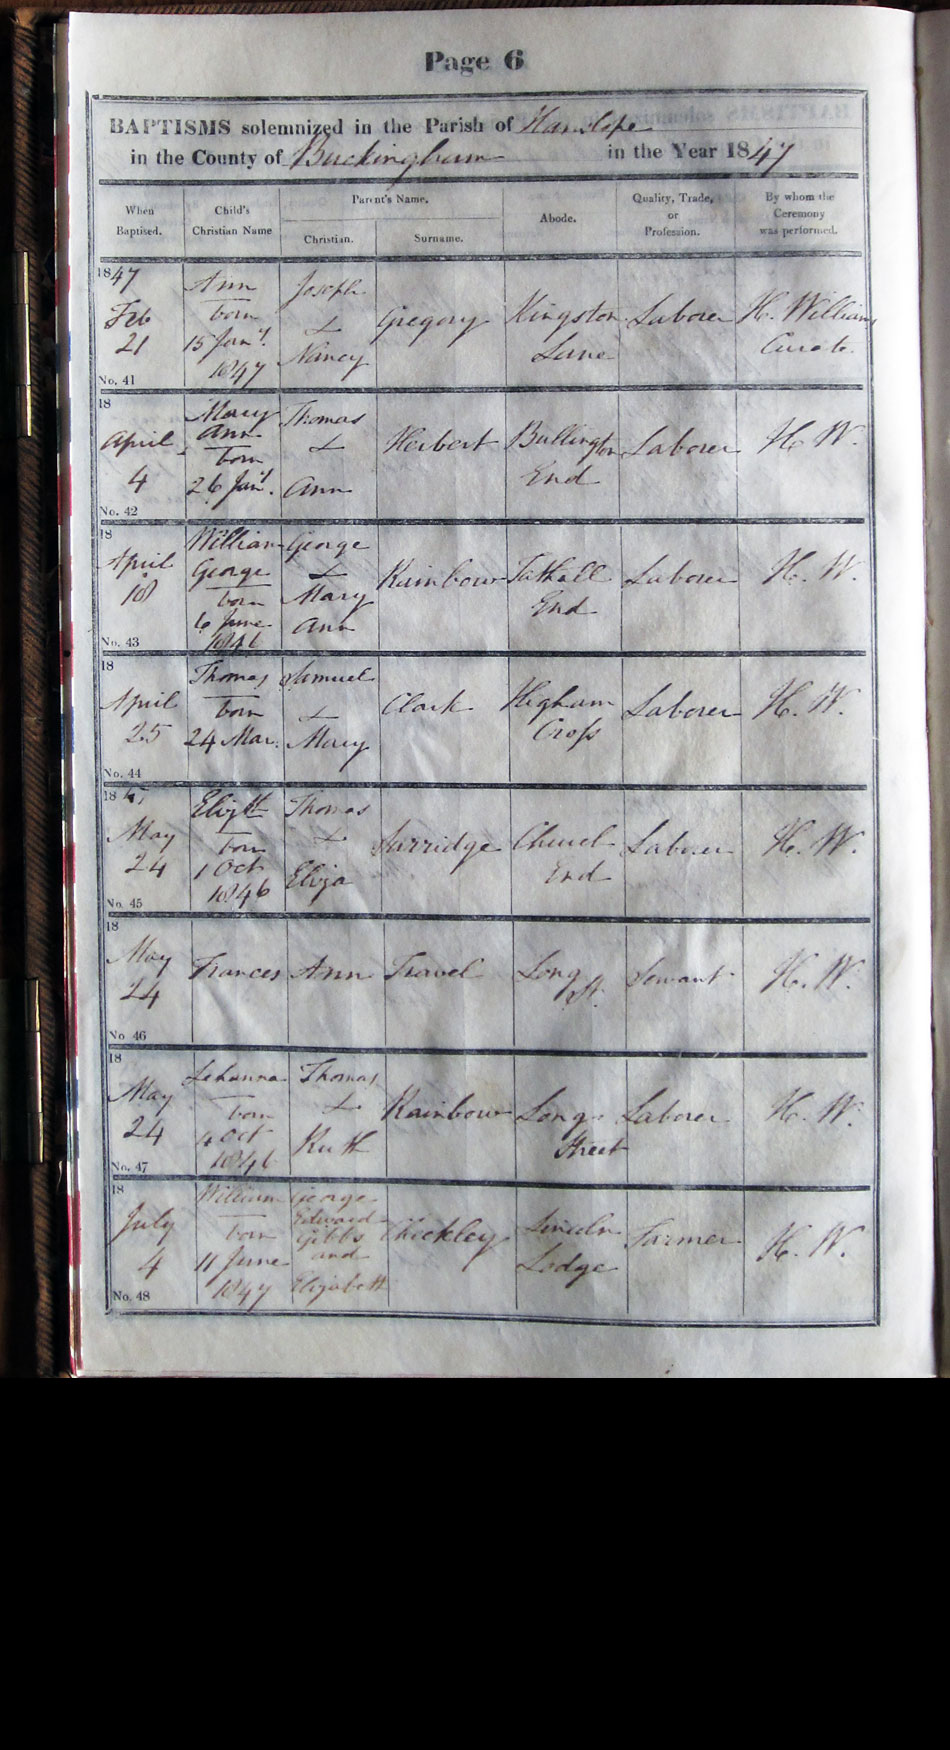 Page 6
BAPTISMS solemnized in the Parish of Hanslope
in the County of Buckingham in the Year 1847
When Baptised.
Child's Christian Name
Parent's Name.
Christian.
Surname.
Abode.
Quality, Trade, or Profession.
By whom the Ceremony was performed.
1847
Feb
21
No. 41
Ann
born
15 Jany.
1847
Joseph
&
Nancy
Gregory
Kingston
Lane
Laborer
H. Williams
Curate
18
April
4
No. 42
Mary
Ann
born
26 Jany.
Thomas
&
Ann
Herbert
Bullington
End
Laborer
H. W.
18
April
18
No. 43
William
George
born
6 June
1846
George
&
Mary
Ann
Rainbow
Tathall
End
Laborer
H. W.
18
April
25
No. 44
Thomas
born
24 Mar.
Samuel
&
Mary
Clark
Higham
Cross
Laborer
H. W.
1847
May
24
No. 45
Elizth
born
1 Oct
1846
Thomas
&
Eliza
Surridge
Church
End
Laborer
H. W.
18
May
24
No 46
Frances
Ann
Travel
Long
St.
Servant
H. W.
18
May
24
No. 47
born
4 Oct
1846
Thomas
&
Ruth
Rainbow
Long
Street
Laborer
H. W.
18
July
4
No. 48
William
born
11 June
1847
George
Edward
Gibbs
and
Elizabeth
Checkley
Lincoln
Lodge
Farmer
H. W.